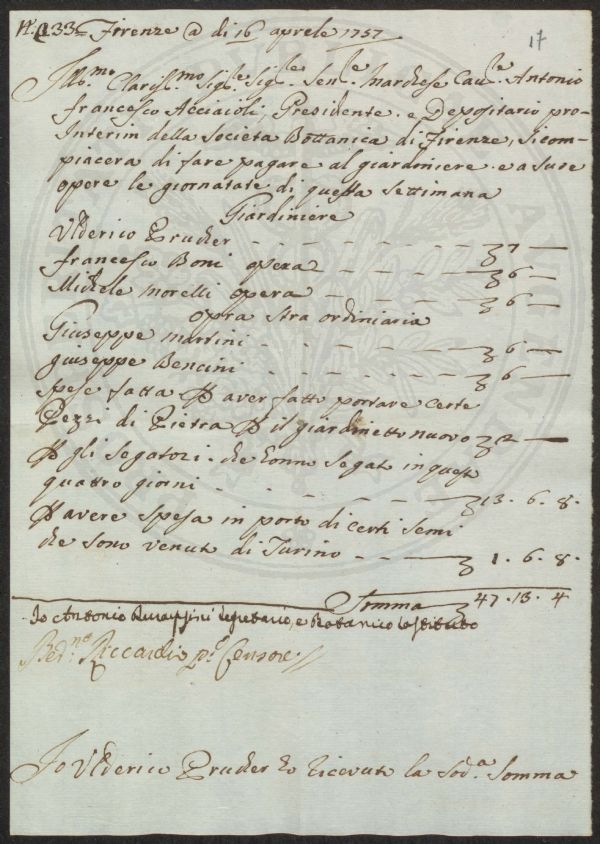 N. 133 Firenze @ di 16 aprele 1757
17
Illo.mo Clariss.mo Sig.le Sig.le Sen.le Marchese Cau.le Antonio
francesco Acciaioli, Presidente. e Depositario pro=
Interim della Societa Bottanica di Firenze, si com=
piacera di fare pagare al giardiniere. e a sure
opere le giornatate di questa settimana
Giardiniere
Ulderico Prucker - - - - - - - 7 —
francesco Boni opera - - - - - 6 —
Michele Morelli opera - - - - 6 —
opra stra ordiniaria
Giuseppe Martini - - - - - - 6 —
guiseppe Bencini - - - - - - 6 —
spese fatta P aver fatto portare certe
Pezzi di Pietra P il giardinetto nuovo 2 —
P gli segatori. che honno segat in quest
quattro giorni - - - - - - 13. 6. 8.
P avere spesa in porto di certi semi
che sono venut di Turino - - - 1. 6. 8.
Somma 47. 13. 4
Io Antonio segretario, e Botanico
Bed.no Riccardi P.o Censore.
Io Ulderico Prucker ho ricevuto la sod.a Somma